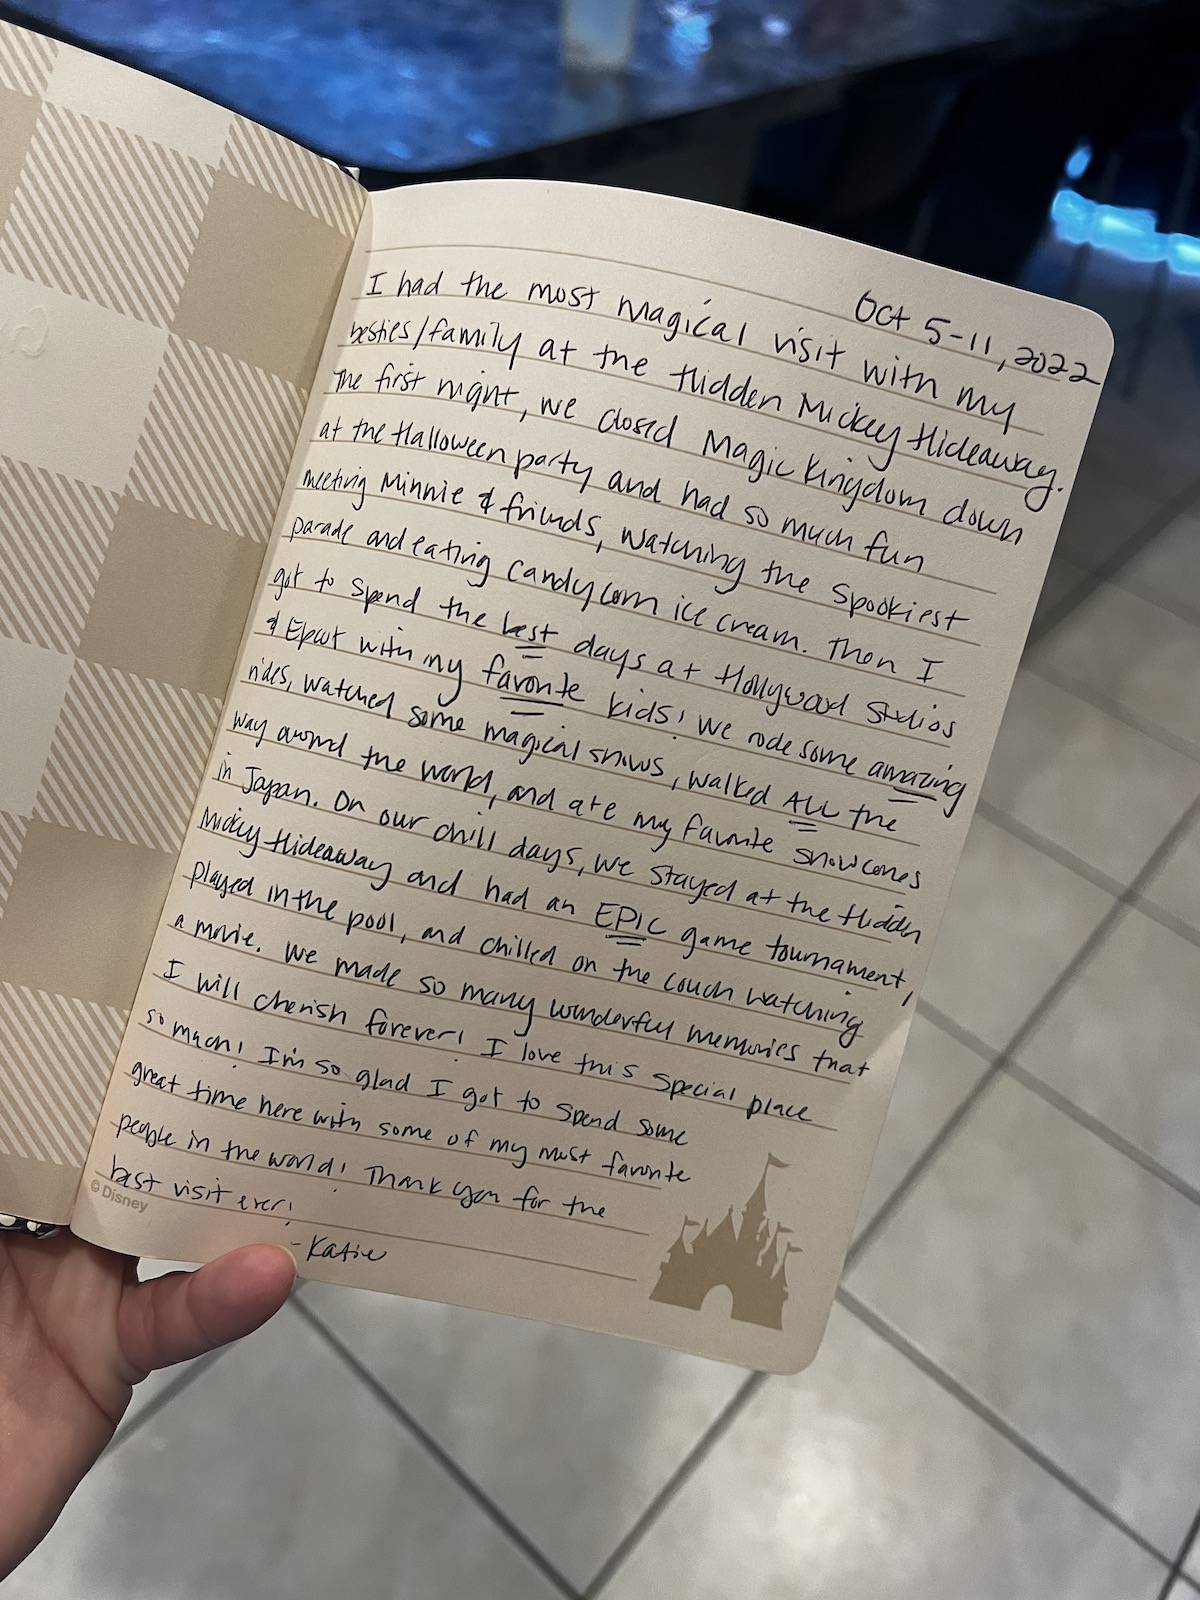 Oct 5-11, 2022
I had the most magical visit with my
besties/family at the Hidden Mickey Hideaway.
The first night, we closed Magic Kingdom down
at the Halloween party and had so much fun
meeting Minnie & friends, watching the spookiest
parade and eating candy corn ice cream. Then I
got to spend the best days at Hollywood Studios
& Epcot with my favorite kids! We rode some amazing
rides, watched some magical shows, walked ALL the
way around the world, and ate my favorite snowcones
in Japan. On our chill days, we stayed at the Hidden
Mickey Hideaway and had an EPIC game tournament,
played in the pool, and chilled on the couch watching
a movie. We made so many wonderful memories that
I will cherish forever! I love this special place
so much! I'm so glad I got to spend some
great time here with some of my most favorite
people in the world! Thank you for the
best visit ever!
-Katie
© Disney